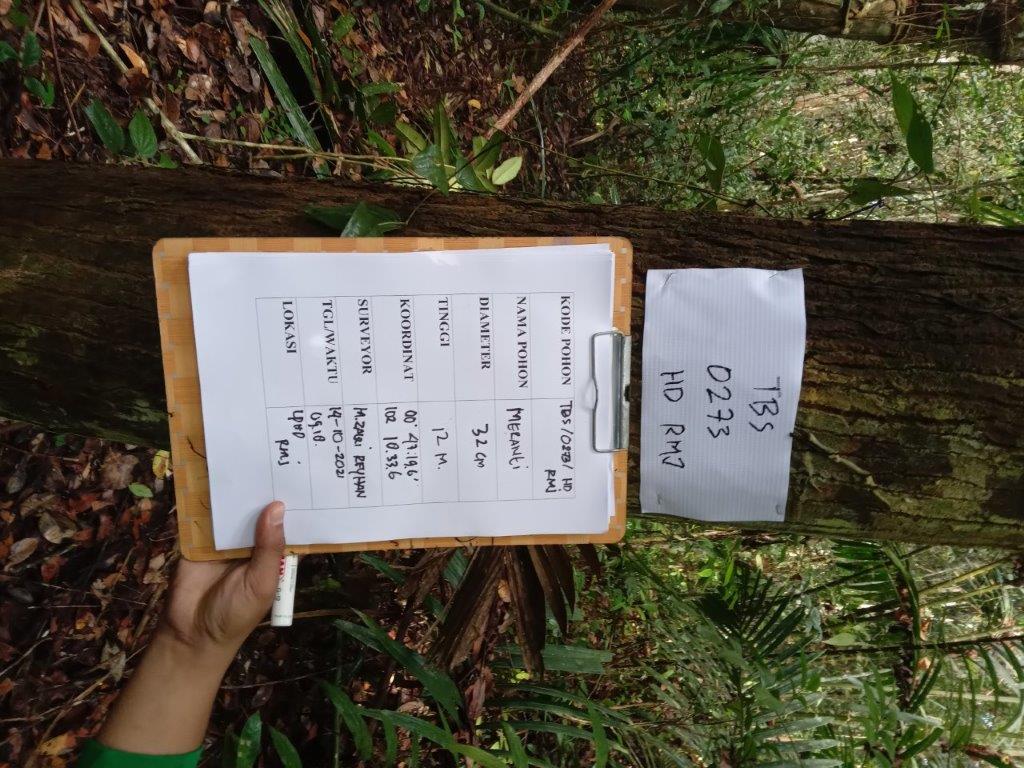 TBS
0273
HD RMJ
KODE POHON TBS/0273/ HD
RMJ
NAMA POHON MERANTI
DIAMETER 32 cm
TINGGI 12 M.
KOORDINAT 00° 47.19.6'
102 10.33.6
SURVEYOR M.ZAKI REYHAN
TGL/WAKTU 14-10-2021
09.10.
LOKASI RMJ